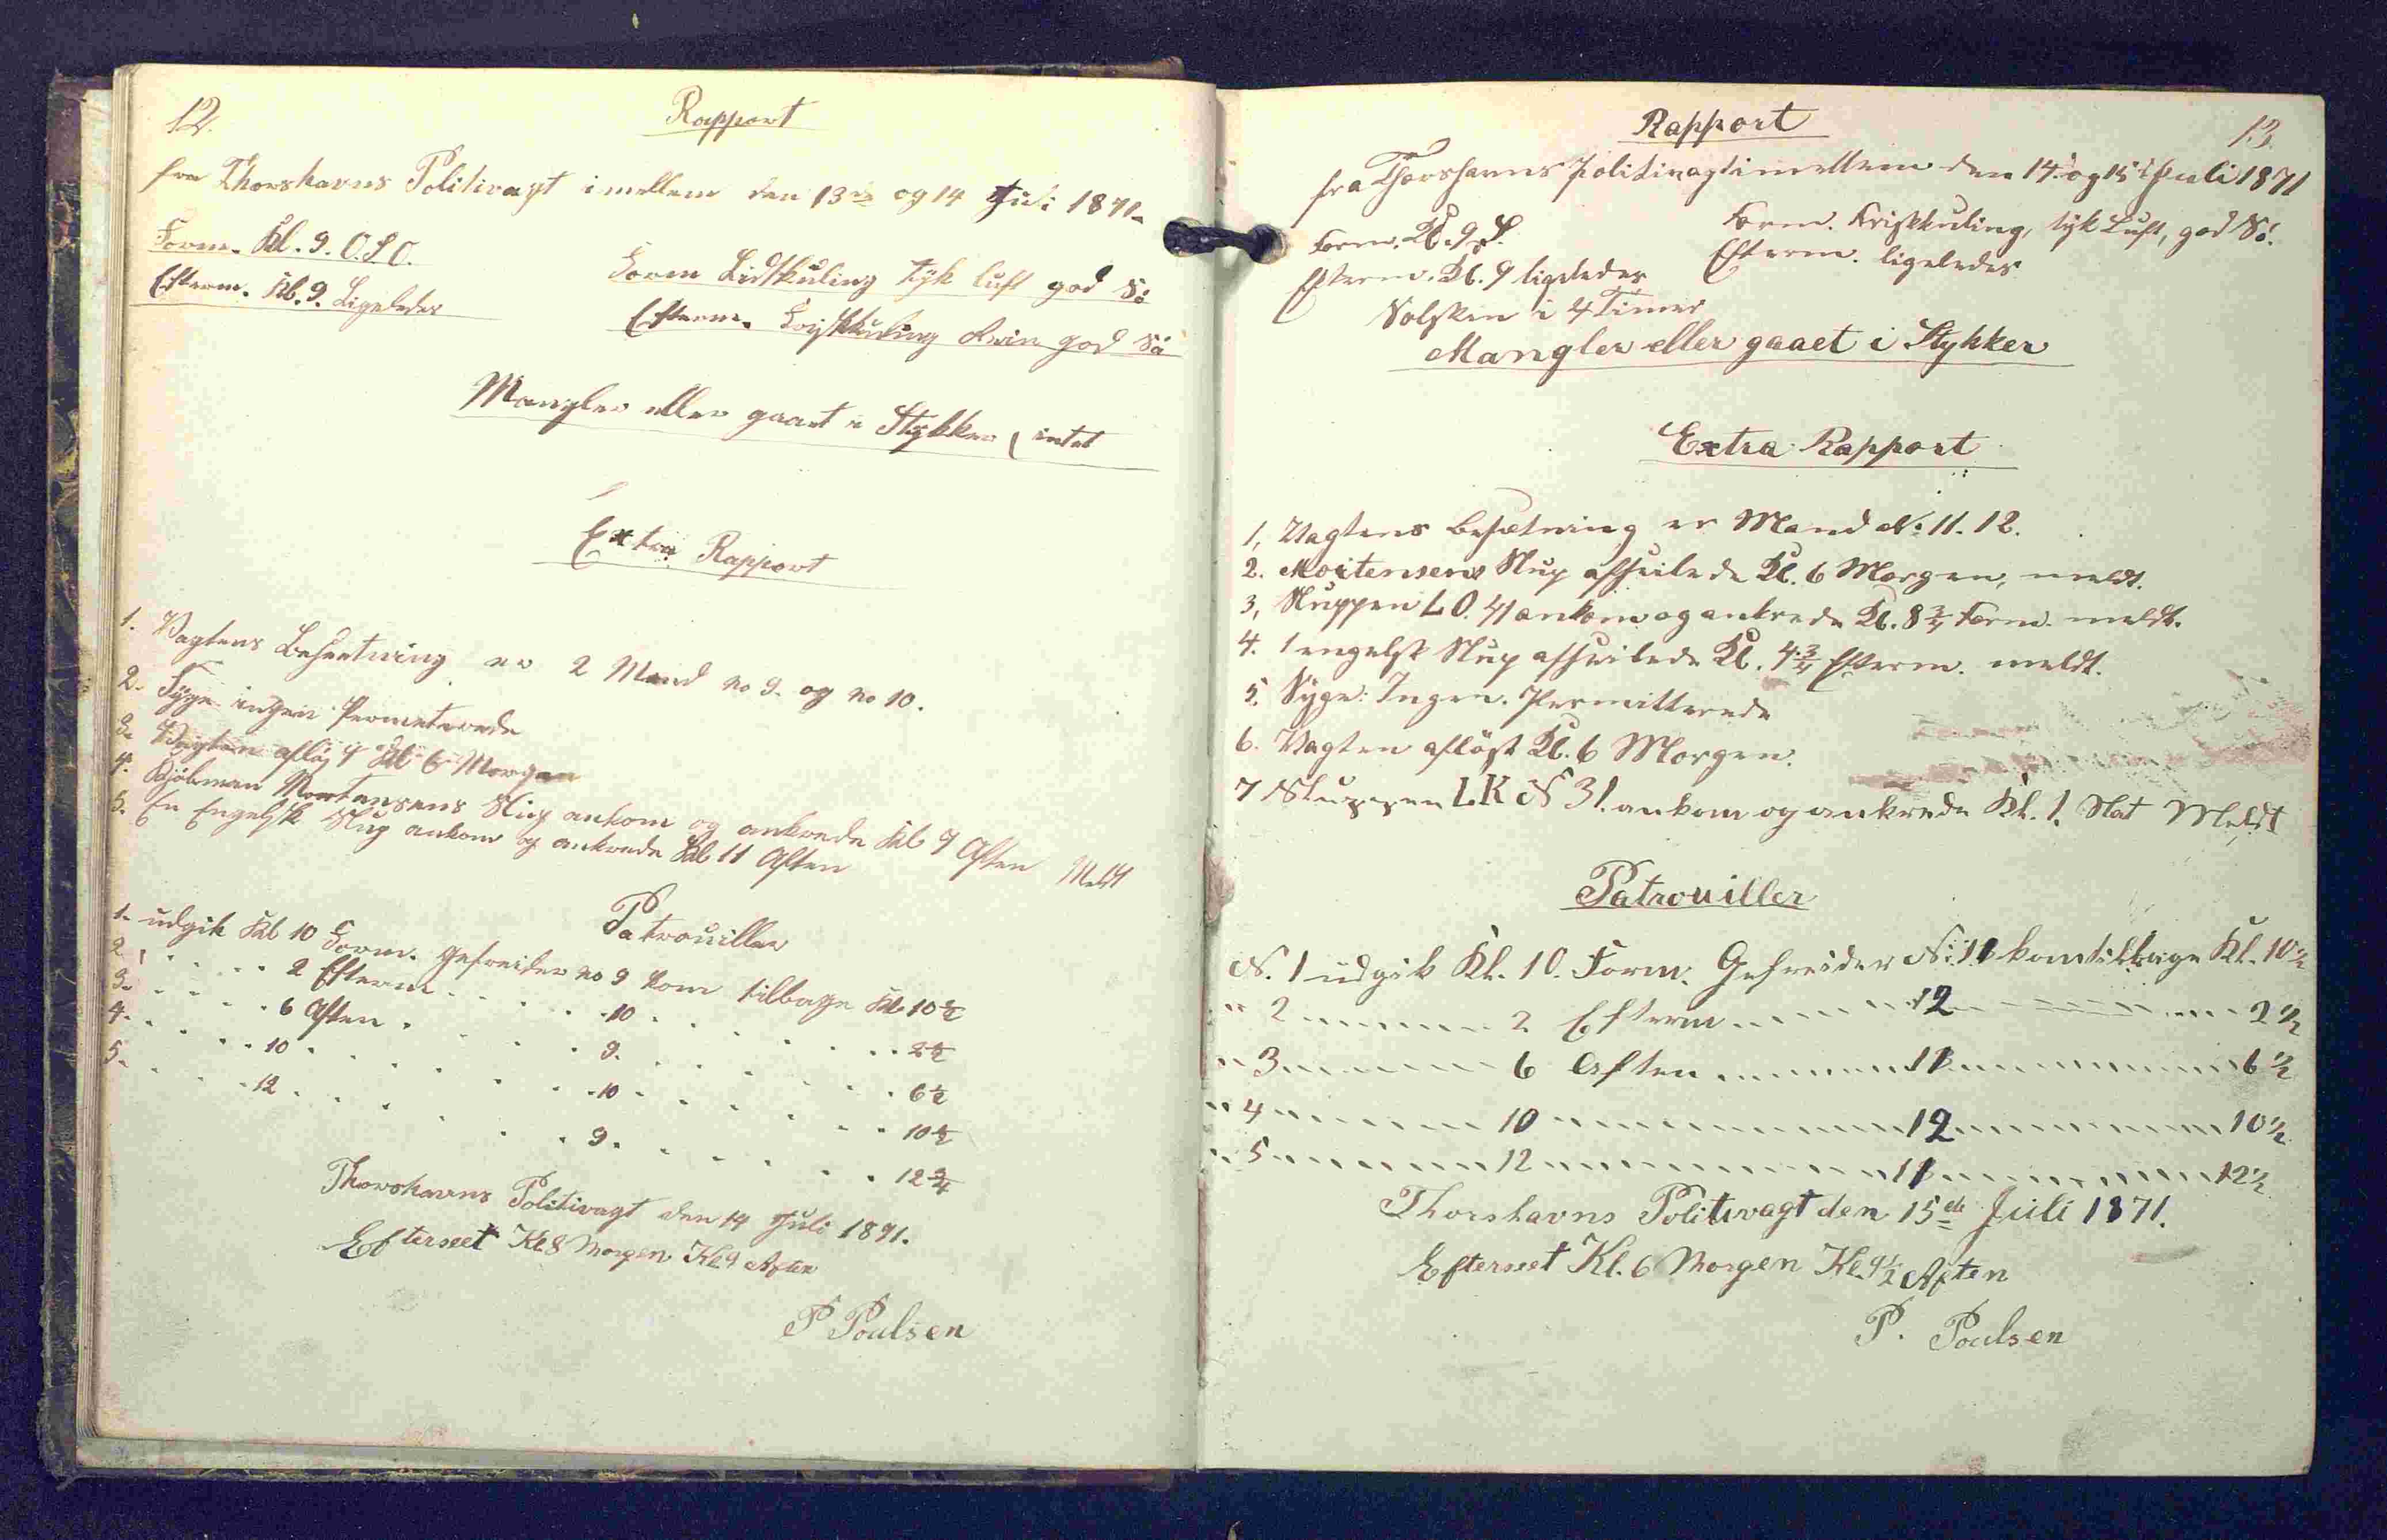 12.
Rapport
fra Thorshavns Politivagt imellem den 13de og 14 Juli 1871
Form. Kl. 9. O.S.O.
Efterm. Kl. 9. Ligeledes
Form Ladkuling tyk luft god Sö
Efterm. Friskkuling Regn god Sö
Mangler eller gaaet i Stykker intet
Extra Rapport
1. Vagtens Besætning er 2 Mand no 9. og no 10.
2. Syge ingen Permeterede
3. Vagten afløst Kl 6 Morgen
4. Kjöbman Mortensens Slup ankom og ankrede Kl 9 Aften Meldt
5. En Engelsk Slup ankom og ankrede Kl 11 Aften
Patrouiller
1. udgik Kl 10 Form. Gefreider no 9 kom tilbage Kl 10 1/2
2. 2 Efterm 10 2 1/2
3. 6 Aften 9. 6 1/2
4. 10 10 10 1/2
5. 12 9. 12 3/4
Thorshavns Politivagt den 14 Juli 1871.
Efterseet Kl 8 Morgen Kl 9 Aften
P Poulsen
13.
Rapport
fra Thorshavns Politivagt imellem den 14. og 15d Juli 1871
Form. Kl. 9 S.
Efterm. Kl. 9 ligeledes
Form. Friskkuling, tyk Luft, god Sö.
Efterm. ligeledes
Solsken i 4 Timer
Mangler eller gaaet i Stykker
Extra Rapport
1, Vagtens Besætning er Mand N: 11. 12.
2. Mortensens Slup afseilede Kl. 6 Morgen, meldt.
3, Sluppen L O. 41 ankom og ankrede Kl. 8 3/4 Form. meldt.
4. 1 engelsk Slup afseilede Kl. 4 3/4 Efterm. meldt.
5. Syge: Ingen. Permitterede
6. Vagten aflöst Kl. 6 Morgen.
7 Sluppen L K N 31. ankom og ankrede Kl. 1. Nat Meldt
Patrouiller
N. 1 udgik Kl. 10. Form. Gefreider N: 11 kom tilbage Kl. 10 1/2
" 2 2 Efterm 12 2 1/2
" 3 6 Aften 11 6 1/2
" 4 10 12 10 1/2
" 5 12 11 12 1/2
Thorshavns Politivagt den 15de Juli 1871.
Efterseet Kl. 6 Morgen Kl. 9 1/2 Aften
P. Poulsen